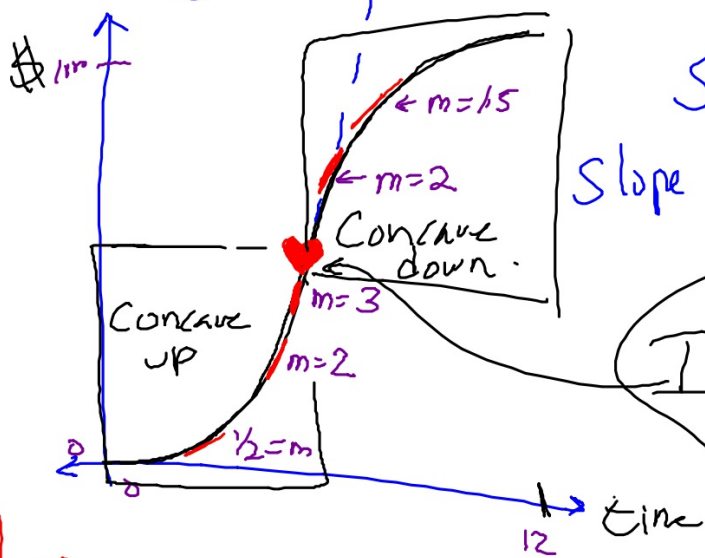 $
1m
m=1.5
m=2
Slope
Concave
down.
m=3
Concave
up
m=2
1/2=m
0
0
12
time